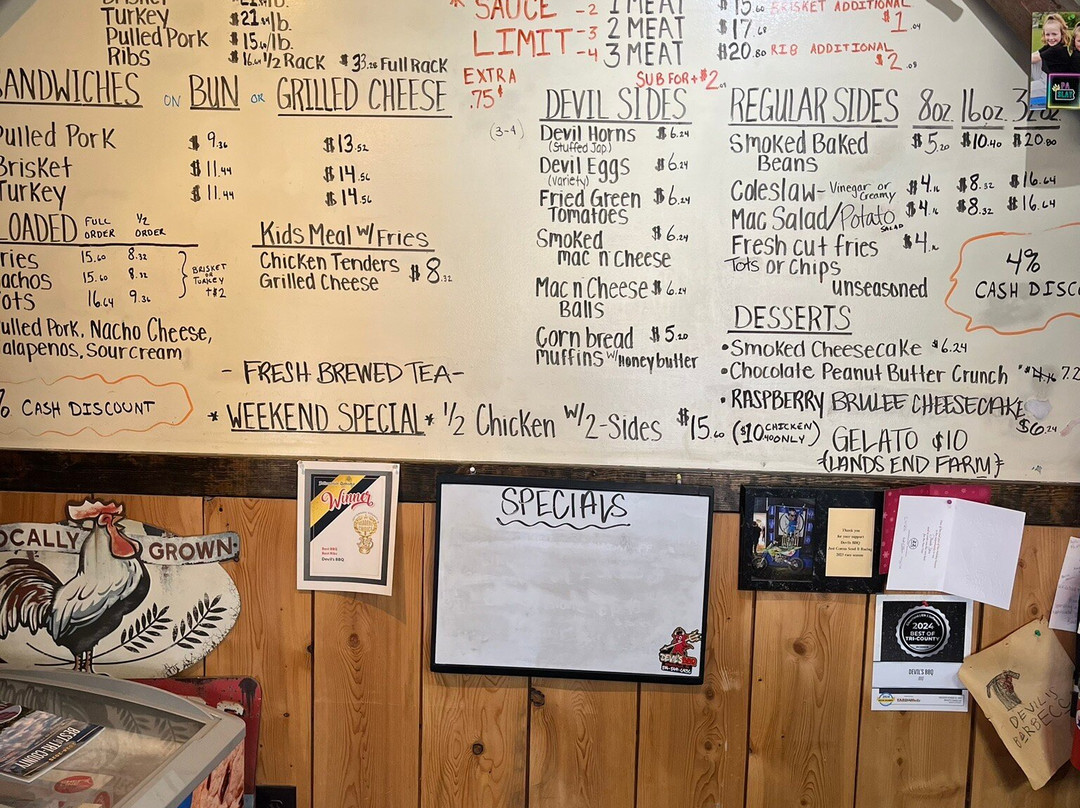 Brisket
Turkey $21.84/lb.
Pulled Pork $15.60/lb.
Ribs $16.64 1/2 Rack $33.28 Full Rack
* SAUCE -2
LIMIT -3
-4
EXTRA
.75¢
1 MEAT $15.60
2 MEAT $17.68
3 MEAT $20.80
BRISKET ADDITIONAL
$1.04
RIB ADDITIONAL
$2.08
SUB FOR +$2
SANDWICHES ON BUN OR GRILLED CHEESE
Pulled Pork $9.36 $13.52
Brisket $11.44 $14.56
Turkey $11.44 $14.56
LOADED FULL ORDER 1/2 ORDER
Fries 15.60 8.32
Nachos 15.60 8.32
Tots 16.64 9.36
BRISKET
OR
TURKEY
+$2
Pulled Pork, Nacho Cheese,
Jalapenos, Sour cream
% CASH DISCOUNT
Kids Meal w/ Fries
Chicken Tenders
Grilled Cheese
$8.32
- FRESH BREWED TEA -
* WEEKEND SPECIAL * 1/2 Chicken w/ 2-Sides $15.60 ($10.40 CHICKEN ONLY)
DEVIL SIDES
(3-4) Devil Horns $6.24
(Stuffed Jap.)
Devil Eggs $6.24
(variety)
Fried Green $6.24
Tomatoes
Smoked $6.24
mac n cheese
Mac n Cheese $6.24
Balls
Corn bread $5.20
muffins w/ Honey butter
REGULAR SIDES 8oz. 16oz. 32oz.
Smoked Baked $5.20 $10.40 $20.80
Beans
Coleslaw - Vinegar or Creamy $4.16 $8.32 $16.64
Mac Salad/Potato SALAD $4.16 $8.32 $16.64
Fresh cut fries $4.16
Tots or Chips
unseasoned
4%
CASH DISCO
DESSERTS
• Smoked Cheesecake $6.24
• Chocolate Peanut Butter Crunch
• RASPBERRY BRULEE CHEESECAKE
$6.24
GELATO $10
{LANDS END FARM}
PA
SLAY
LOCALLY GROWN
Winner
Best BBQ
Best Ribs
Devil's BBQ
SPECIALS
DEVIL'S BBQ
Thank you
for your support
Devils BBQ
2023 race season
2024
BEST OF
TRI-COUNTY
DEVIL'S BBQ
DEVIL'S
BARBECUE
BEST OF TRI-COUNTY